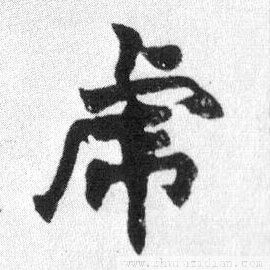 虎
www.shufazidian.com